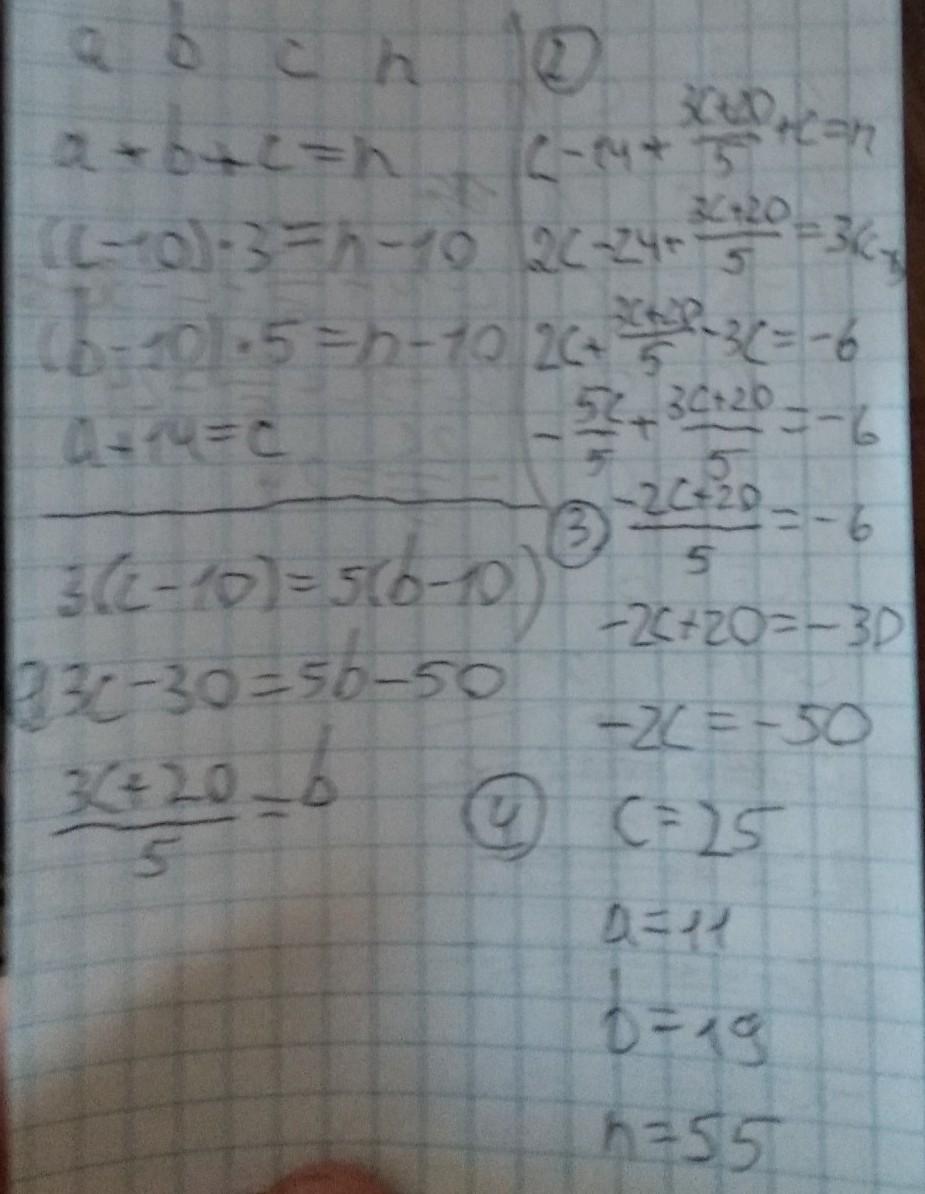 a b c n
a + b + c = n
(c-10)·3 = n-10
(b-10)·5 = n-10
a+14=c
3(c-10)=5(b-10)
3c-30=5b-50
\frac{3c+20}{5}=b
②
c-14+\frac{3c+20}{5}+c=n
2c-24+\frac{3c+20}{5}=3c-
2c+\frac{3c+20}{5}-3c=-6
-\frac{5c}{5}+\frac{3c+20}{5}=-6
③ \frac{-2c+20}{5}=-6
-2c+20=-30
-2c=-50
④ c=25
a=11
b=19
n=55